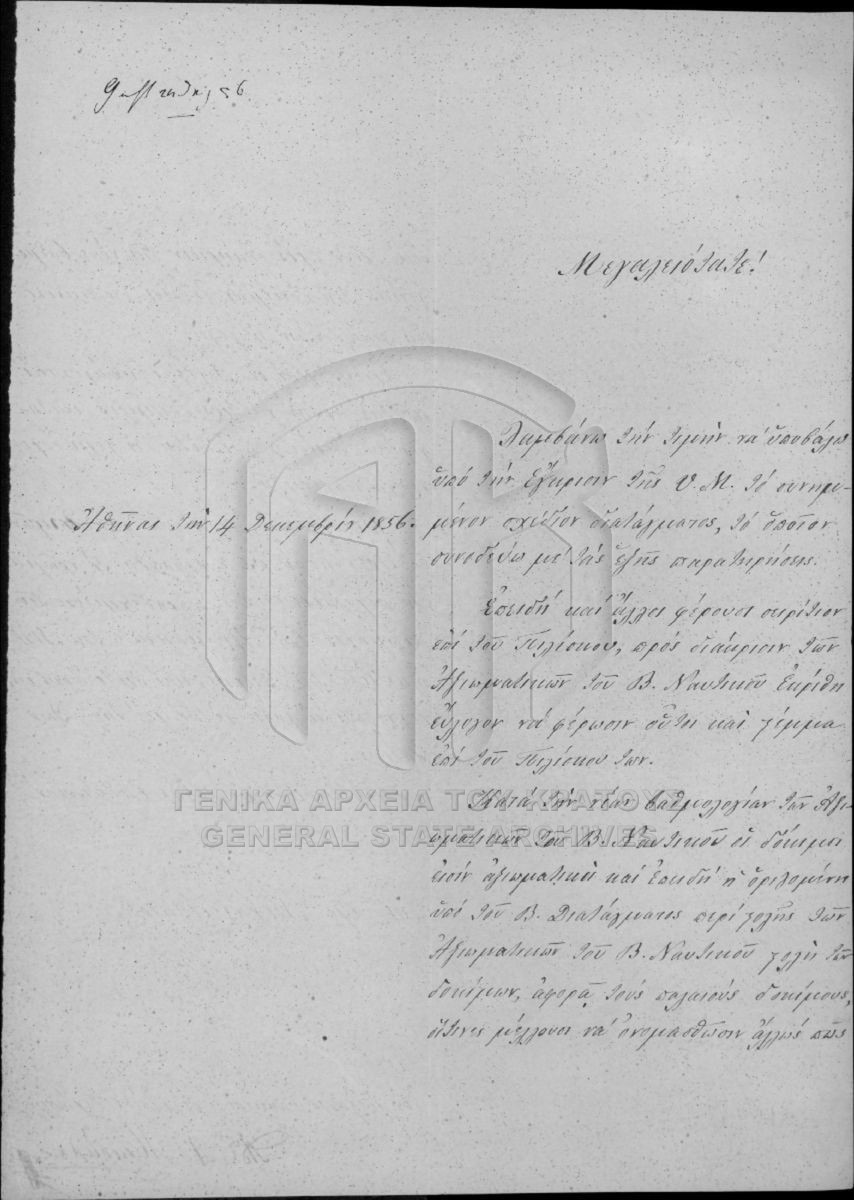 Μεγαλειότατε!
Λαμβάνω τὴν τιμὴν νὰ ὑποβάλω
ὑπὸ τὴν ἔγκρισιν τῆς Υ. Μ. τὸ συνημ-
Ἀθῆναι τὴν 14 Δεκεμβρίου 1856.
μένον σχέδιον διατάγματος, τὸ ὁποῖον
συνοδεύω μὲ τὰς ἑξῆς παρατηρήσεις.
Ἐπειδὴ καὶ ἄλλοι φέρουσι σιρίτιον
ἐπὶ τοῦ Πιλίσκου, πρὸς διάκρισιν τῶν
Ἀξιωματικῶν τοῦ Β. Ναυτικοῦ ἐκρίθη
εὔλογον νὰ φέρωσιν οὗτοι καὶ στέμμα
ἐπὶ τοῦ Πιλίσκου των.
ΓΕΝΙΚΑ ΑΡΧΕΙΑ ΤΟΥ ΚΡΑΤΟΥΣ
GENERAL STATE ARCHIVES
Κατὰ τὴν νέαν βαθμολογίαν τῶν Ἀξι-
ωματικῶν τοῦ Β. Ναυτικοῦ οἱ δόκιμοι
εἰσὶν ἀξιωματικοὶ καὶ ἐπειδὴ ἡ ὁριζομένη
ὑπὸ τοῦ Β. Διατάγματος περὶ στολῆς τῶν
Ἀξιωματικῶν τοῦ Β. Ναυτικοῦ στολὴ τῶν
δοκίμων, ἀφορᾷ τοὺς παλαιοὺς δοκίμους,
οἵτινες μέλλουσι νὰ ὀνομασθῶσιν ἄλλως πως